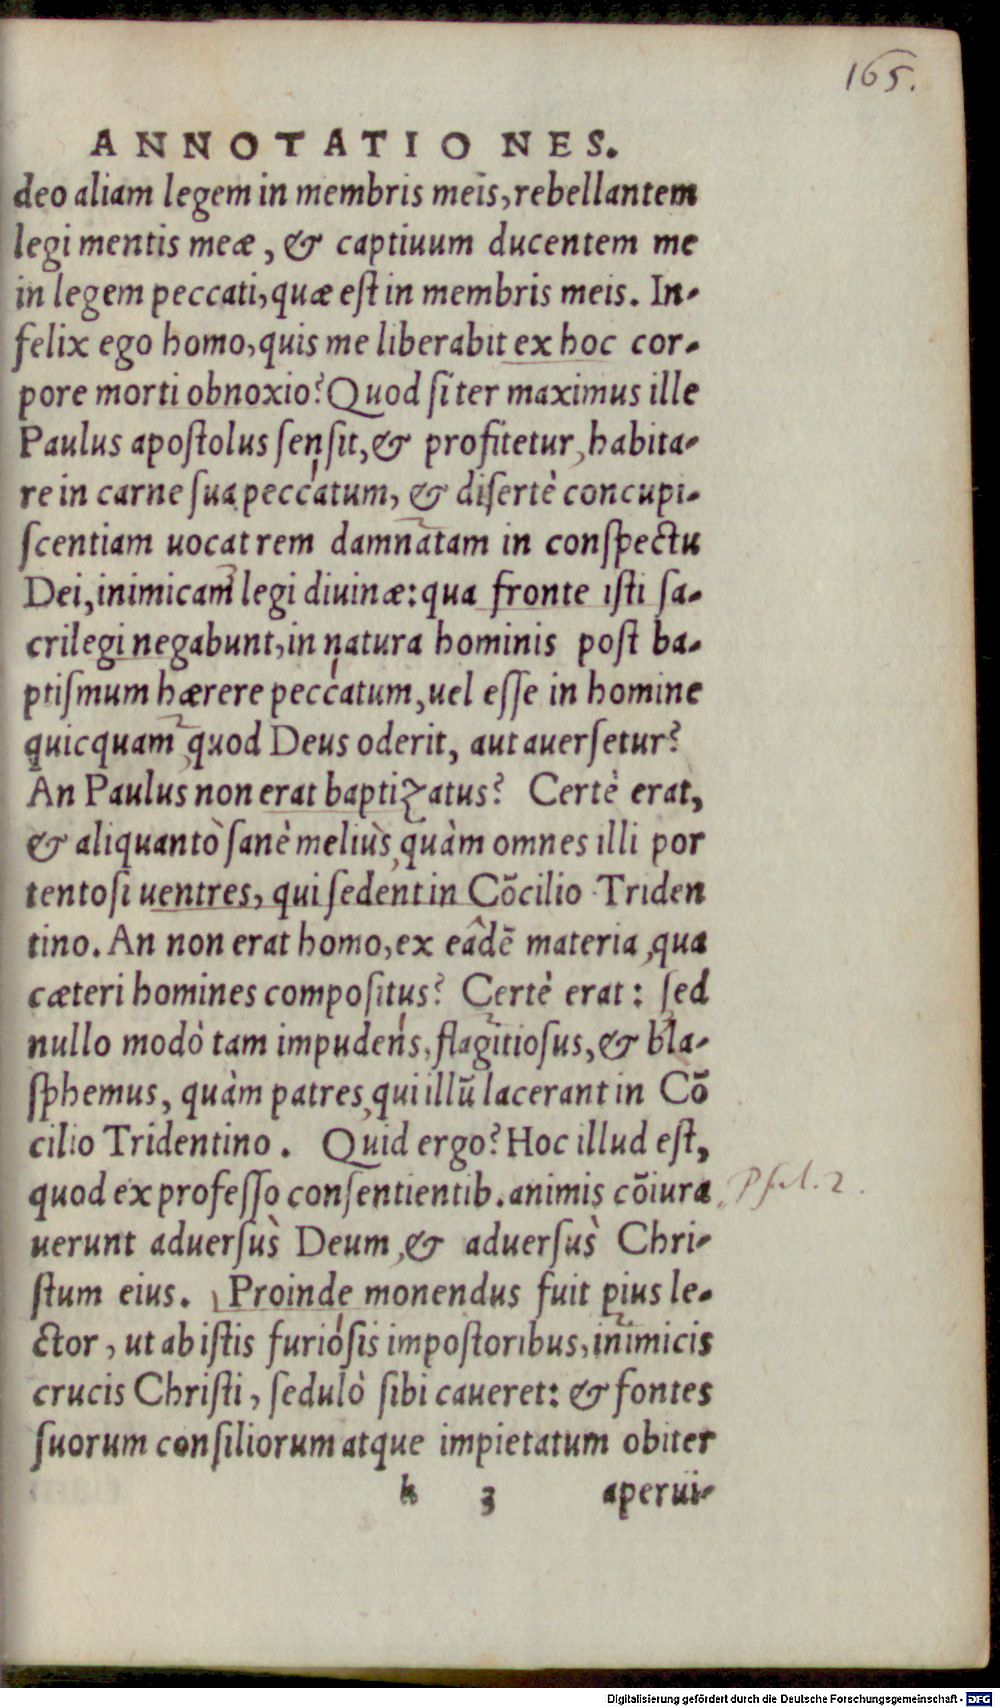 165.
ANNOTATIONES.
deo aliam legem in membris meis, rebellantem
legi mentis meæ, & captiuum ducentem me
in legem peccati, quæ eſt in membris meis. In-
felix ego homo, quis me liberabit ex hoc cor-
pore morti obnoxio? Quod ſi ter maximus ille
Paulus apoſtolus ſenſit, & profitetur, habita-
re in carne ſua peccatum, & diſertè concupi-
ſcentiam uocat rem damnatam in conſpectu
Dei, inimicam legi diuinæ: qua fronte iſti ſa-
crilegi negabunt, in natura hominis poſt ba-
ptiſmum hærere peccatum, uel eſſe in homine
quicquam, quod Deus oderit, aut auerſetur?
An Paulus non erat baptizatus? Certè erat,
& aliquantò ſanè meliùs, quàm omnes illi por
tentoſi uentres, qui ſedent in Cōcilio Triden
tino. An non erat homo, ex eâdē materia, qua
cæteri homines compoſitus? Certè erat: ſed
nullo modò tam impudens, flagitioſus, & bla-
ſphemus, quàm patres, qui illū lacerant in Cō
cilio Tridentino. Quid ergo? Hoc illud eſt,
quod ex profeſſo conſentientib. animis cōiura
Pſal. 2.
uerunt aduerſus̀ Deum, & aduerſus̀ Chri-
ſtum eius. Proinde monendus fuit pius le-
ctor, ut ab iſtis furióſis impoſtoribus, inimicis
crucis Chriſti, ſedulò ſibi caueret: & fontes
ſuorum conſiliorum atque impietatum obiter
k 3 aperui-
Digitalisierung gefördert durch die Deutsche Forschungsgemeinschaft - DFG